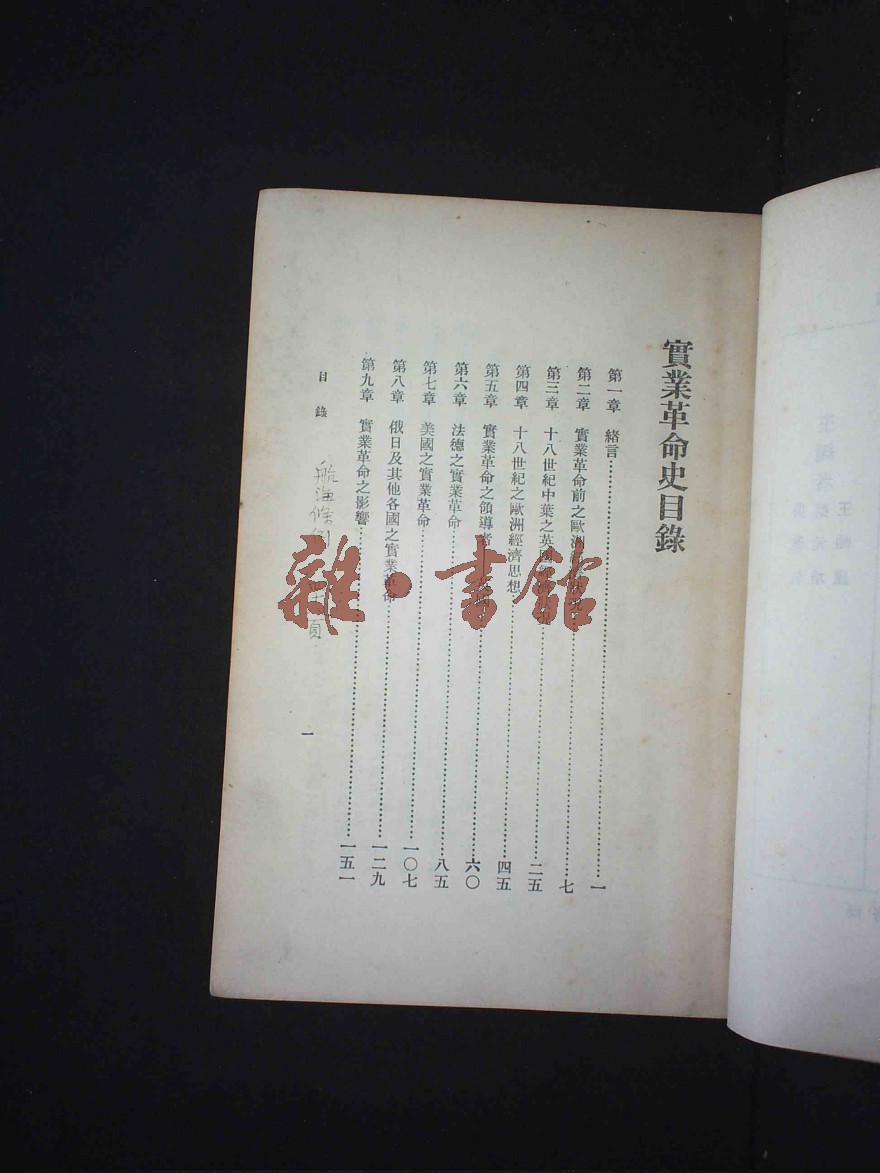 實業革命史目錄
第一章 緒言……一
第二章 實業革命前之歐洲……七
第三章 十八世紀中葉之英國……二五
第四章 十八世紀之歐洲經濟思想……四五
第五章 實業革命之領導者……六〇
第六章 法德之實業革命……八五
第七章 美國之實業革命……一〇七
第八章 俄日及其他各國之實業革命……一二九
第九章 實業革命之影響……一五一
目錄
一
航海條例 頁
雜·書館